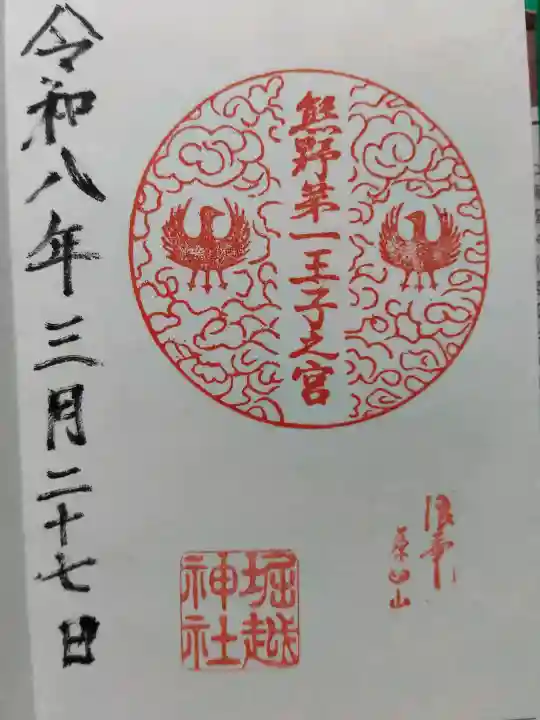 熊野第一王子之宮
堀越
神社
令和八年三月二十七日